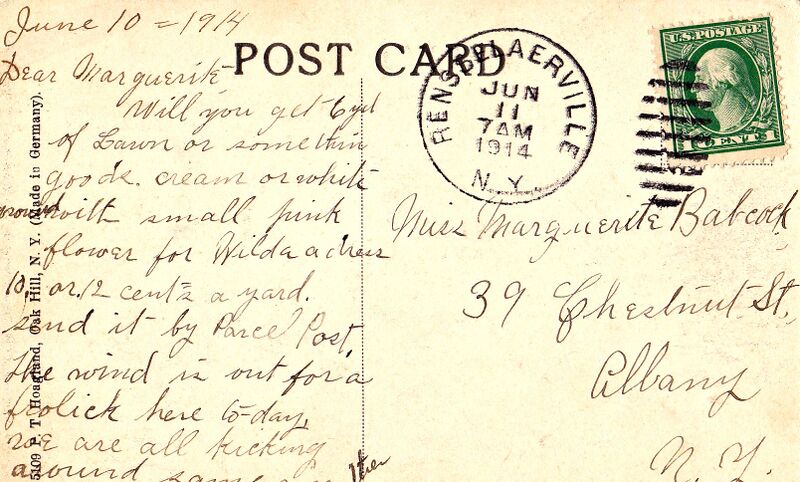 June 10 = 1914
POST CARD
Dear Marguerite
Will you get 6 yd
of Lawn or somethin
goods. cream or white
ground with small pink
flower for Wilda a dress
10 or 12 cent's a yard.
send it by Parcel Post.
The wind is out for a
frolick here to-day,
we are all kicking
around same
Mother
5109 P. T. Hoagland, Oak Hill, N. Y. (Made in Germany).
RENSSELAERVILLE
JUN
11
7AM
1914
N.Y.
U.S. POSTAGE
1 CENT 1
Miss Marguerite Babcock
39 Chestnut St,
Albany
N. Y.